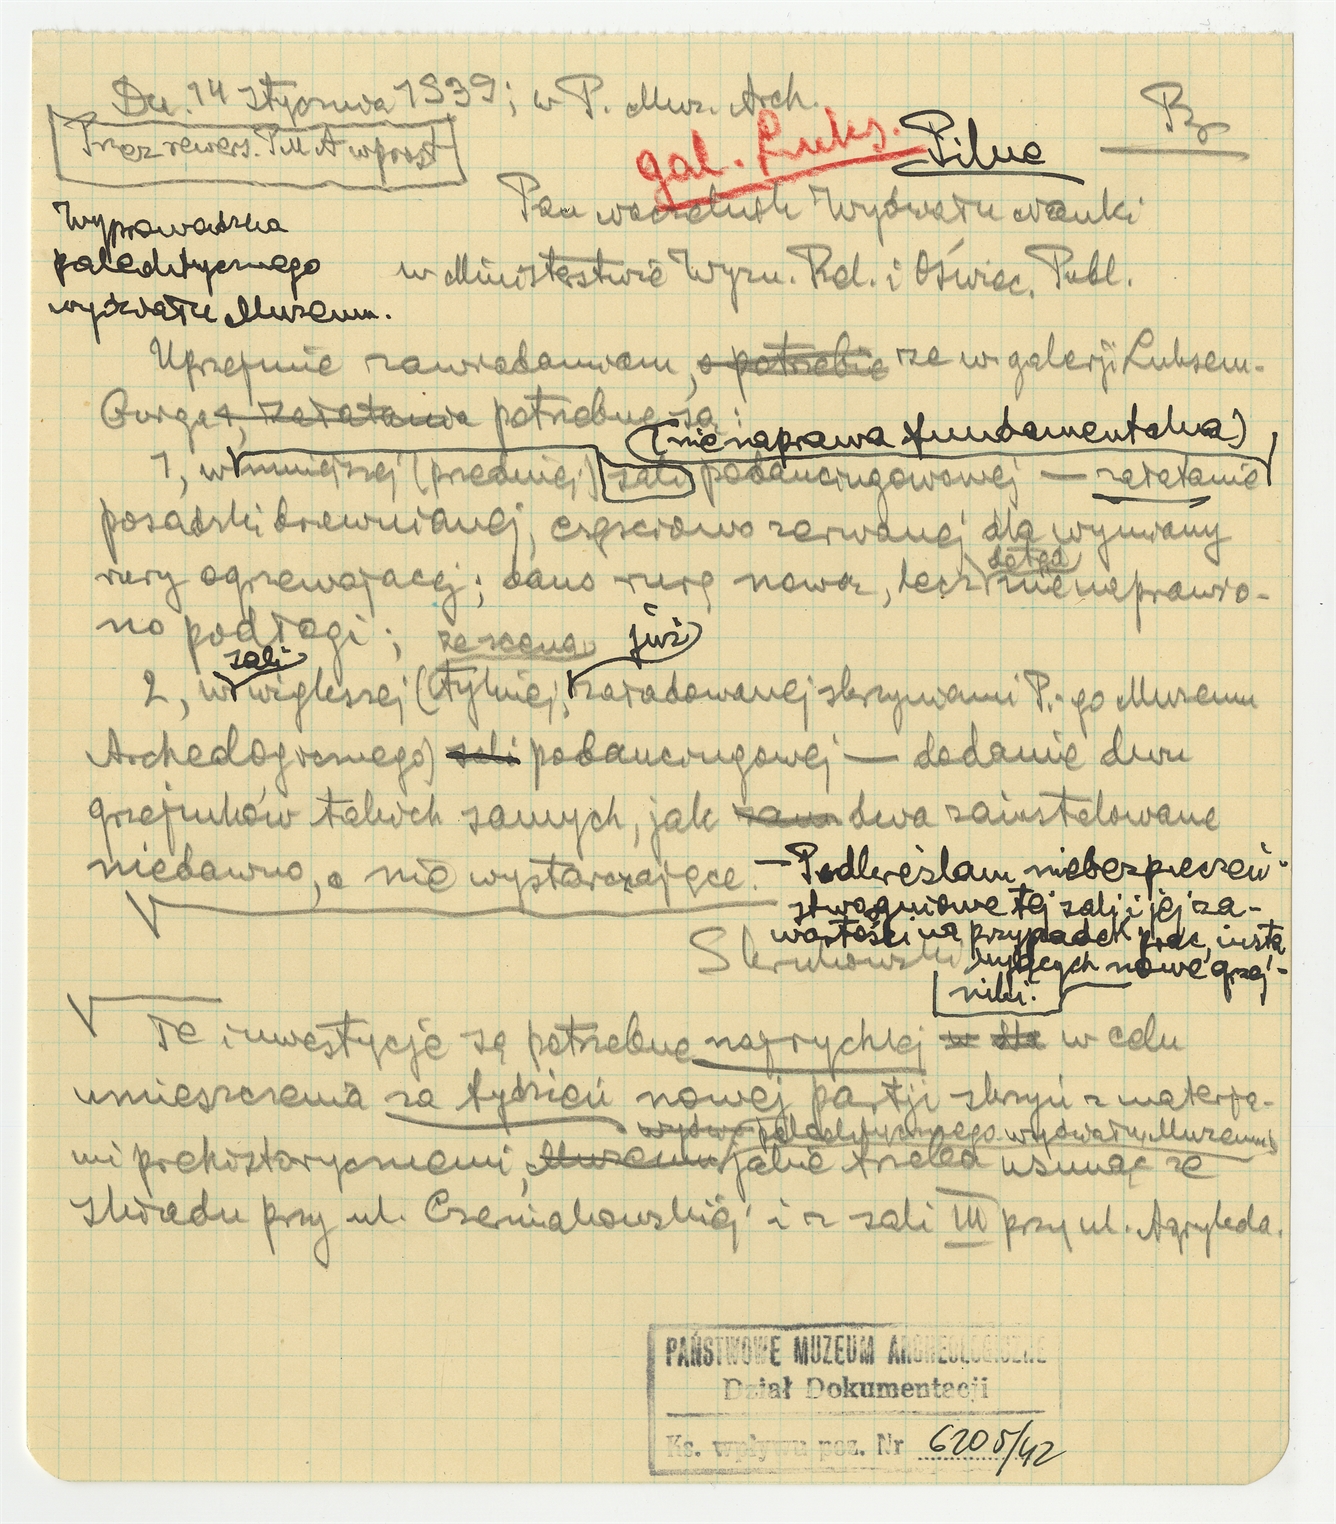 Dn. 14 stycznia 1939; w P. Muz. Arch.
Przez rewers. PMA wprost
gal. Luks.
Pilne
Pan naczelnik Wydziału Nauki
w Ministerstwie Wyzn. Rel. i Oświec. Publ.
Wyprowadzka
paleolitycznego
wydziału Muzeum.
Uprzejmie zawiadamiam, o potrzebie że w galerji Luksem-
burga, załatania potrzebne są:
(nie naprawa fundamentalna)
1, w mniejszej (przedniej) sali podancingowowej — załatanie
posadzki drewnianej, częściowo zerwanej dla wymiany
rury ogrzewającej; dano rurę nową, lecz dotąd nie naprawio-
no podłogi;
2, w sali większej (tylniej, ze sceną, już załadowanej skrzyniami P.-go Muzeum
Archeologicznego) sali podancingowej — dodanie dwu
grzejników takich samych, jak dwa zainstalowane
niedawno, a nie wystarczające. — Podkreślam niebezpieczeń-
stwo ogniowe tej sali i jej za-
wartości na przypadek prac, insta
lujących nowe grzej-
niki.
Te inwestycje są potrzebne najrychlej w dla w celu
umieszczenia za tydzień nowej partji skrzyń z materja-
mi prehistorycznemi, Muzeum paleolitycznego wydziału Muzeum, jakie trzeba usunąć ze
składu przy ul. Czerniakowskiej i z sali III przy ul. Agrykola.
PAŃSTWOWE MUZEUM ARCHEOLOGICZNE
Dział Dokumentacji
Ks. wpływu poz. Nr 6205/42